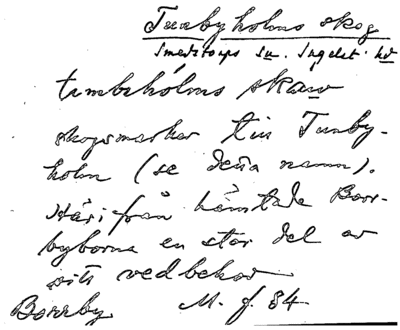 Tunbyholms skog
Smedstorps sn. Ingelst. hd
tumbehólms skaw
skogsmarker till Tunby-
holm (se detta namn).
Härifrån hämtade Borr-
byborna en stor del av
sitt vedbehov
Borrby M. f. 84